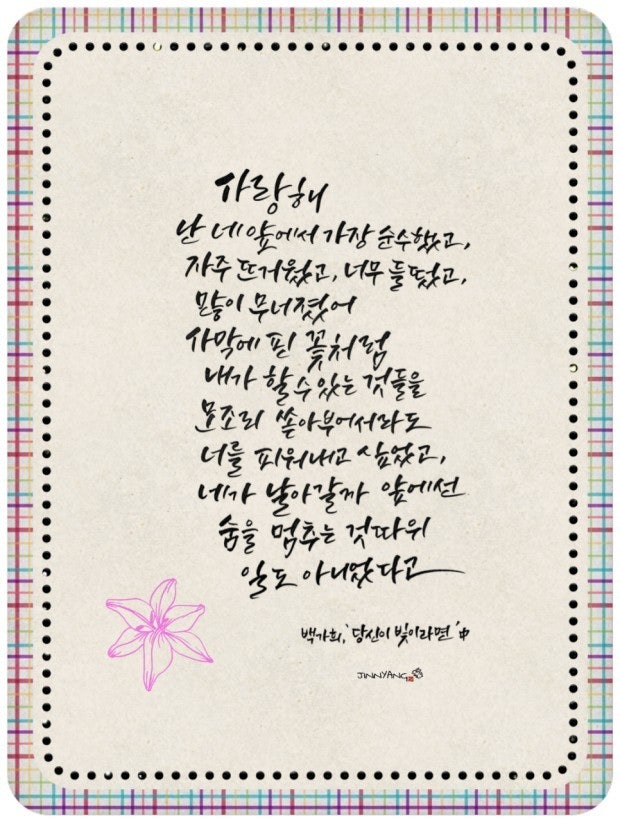 사랑해
난 네 앞에서 가장 순수했고,
자주 뜨거웠고, 너무 들떴고,
많이 무너졌어
사막에 핀 꽃처럼
내가 할 수 있는 것들을
모조리 쏟아부어서라도
너를 피워내고 싶었고,
네가 날아갈까 앞에선
숨을 멈추는 것따위
일도 아니었다고
백가희, '당신이 빛이라면' 中
JINNYANG